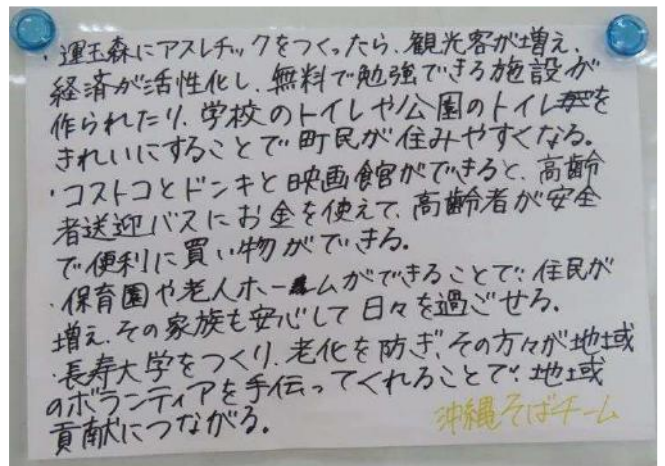 ・運玉森にアスレチックをつくったら、観光客が増え、
経済が活性化し、無料で勉強できる施設が
作られたり、学校のトイレや公園のトイレを
きれいにすることで町民が住みやすくなる。
・コストコとドンキと映画館ができると、高齢
者送迎バスにお金を使えて、高齢者が安全
で便利に買い物ができる。
・保育園や老人ホームができることで、住民が
増え、その家族も安心して日々を過ごせる。
・長寿大学をつくり、老化を防ぎ、その方々が地域
のボランティアを手伝ってくれることで、地域
貢献につながる。
沖縄そばチーム